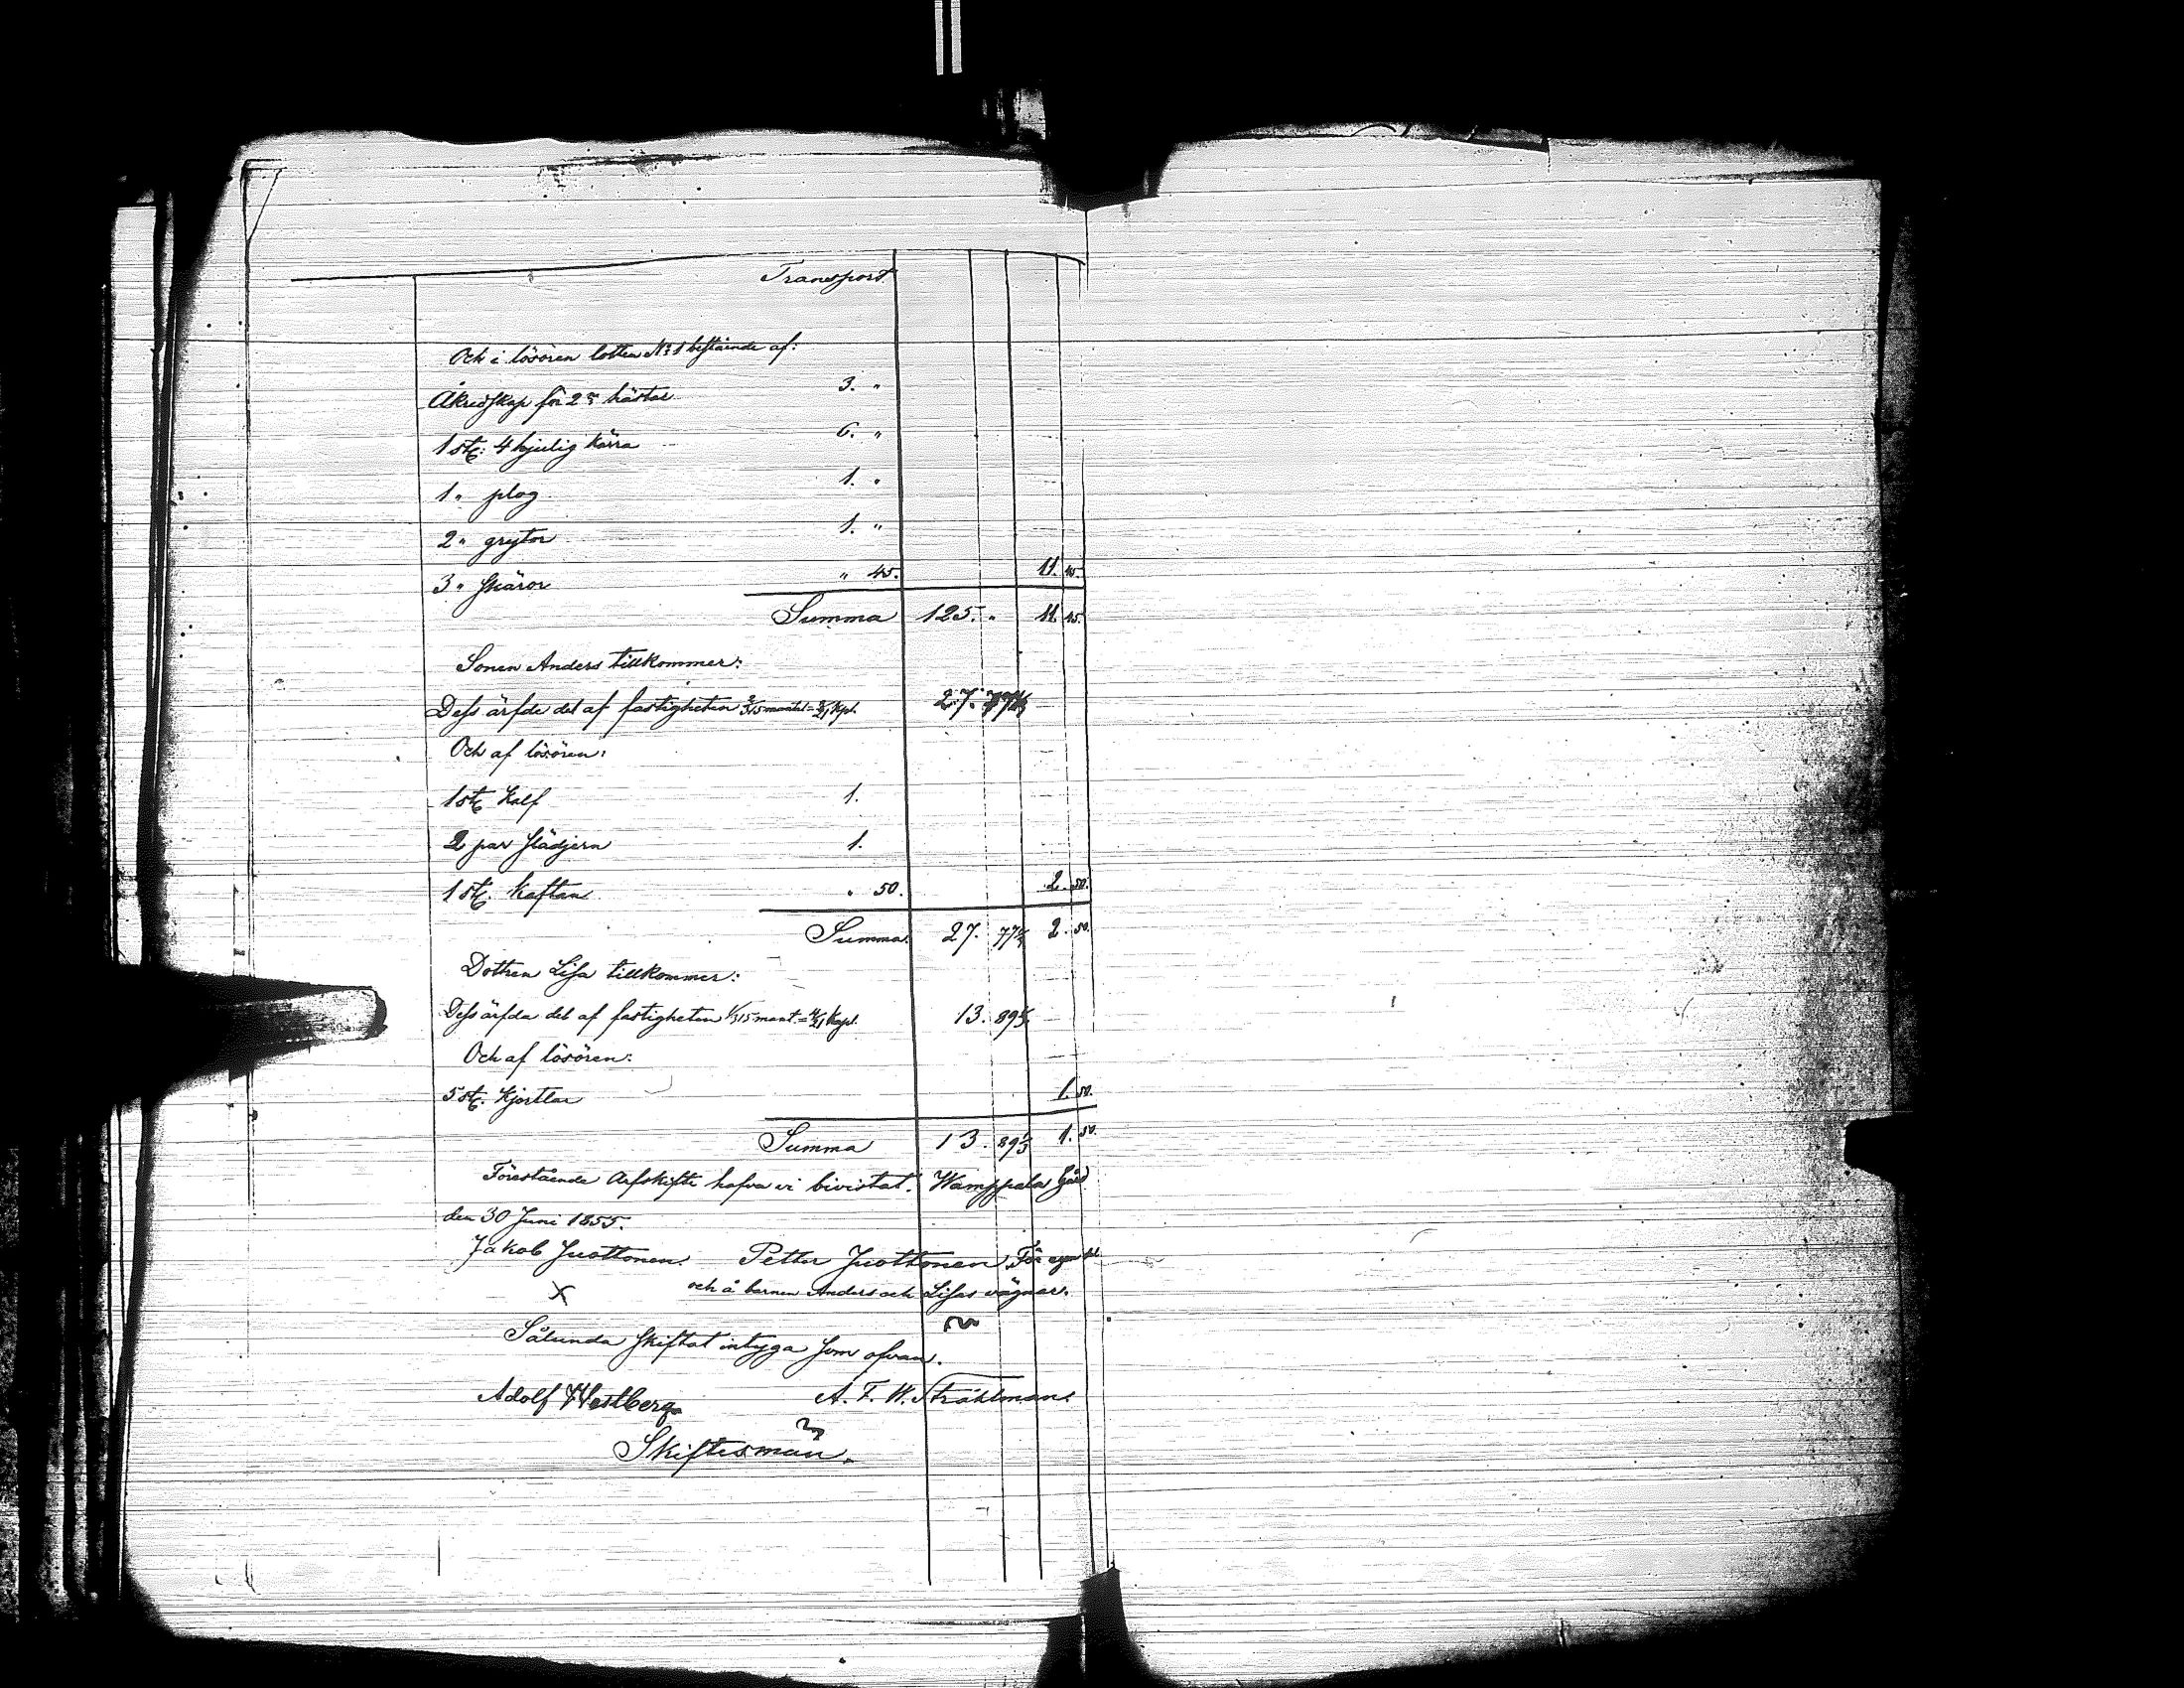 Transport
Och i lösören lotten N:o 1 bestående af:
Åkredskap för 2ne hästar 3. "
1 st: 4 hjulig kärra 6. "
1 " plog 1. "
2 " grytor 1. "
3 " skäror " 45. 11. 45.
Summa 125. " 11. 45.
Sonen Anders tillkommer:
Dess ärfde del af fastigheten 2/315 mantal = 8/21 kpl. 27. 77
Och af lösören:
1 st. Kalf 1.
2 par slädjern 1.
1 st. Kaftan " 50. 2. 50.
Summa 27. 77 2. 50.
Dottren Lisa tillkommer:
Dess ärfda del af fastigheten 1/315 mant. = 4/21 Kapl. 13. 89
Och af lösören:
5 st. Kjortlar 1. 50.
Summa 13. 89 1. 50.
Förestående Arfskifte hafva vi bivistat. Wamppala Gård
den 30 Juni 1855.
Jakob Juottonen. Petter Juottonen För egen del
X och å barnen Anders och Lisas vägnar.
Sålunda skiftat intyga som ofvan.
Adolf Westberg A. F. W. Stråhlman.
Skiftesmän.